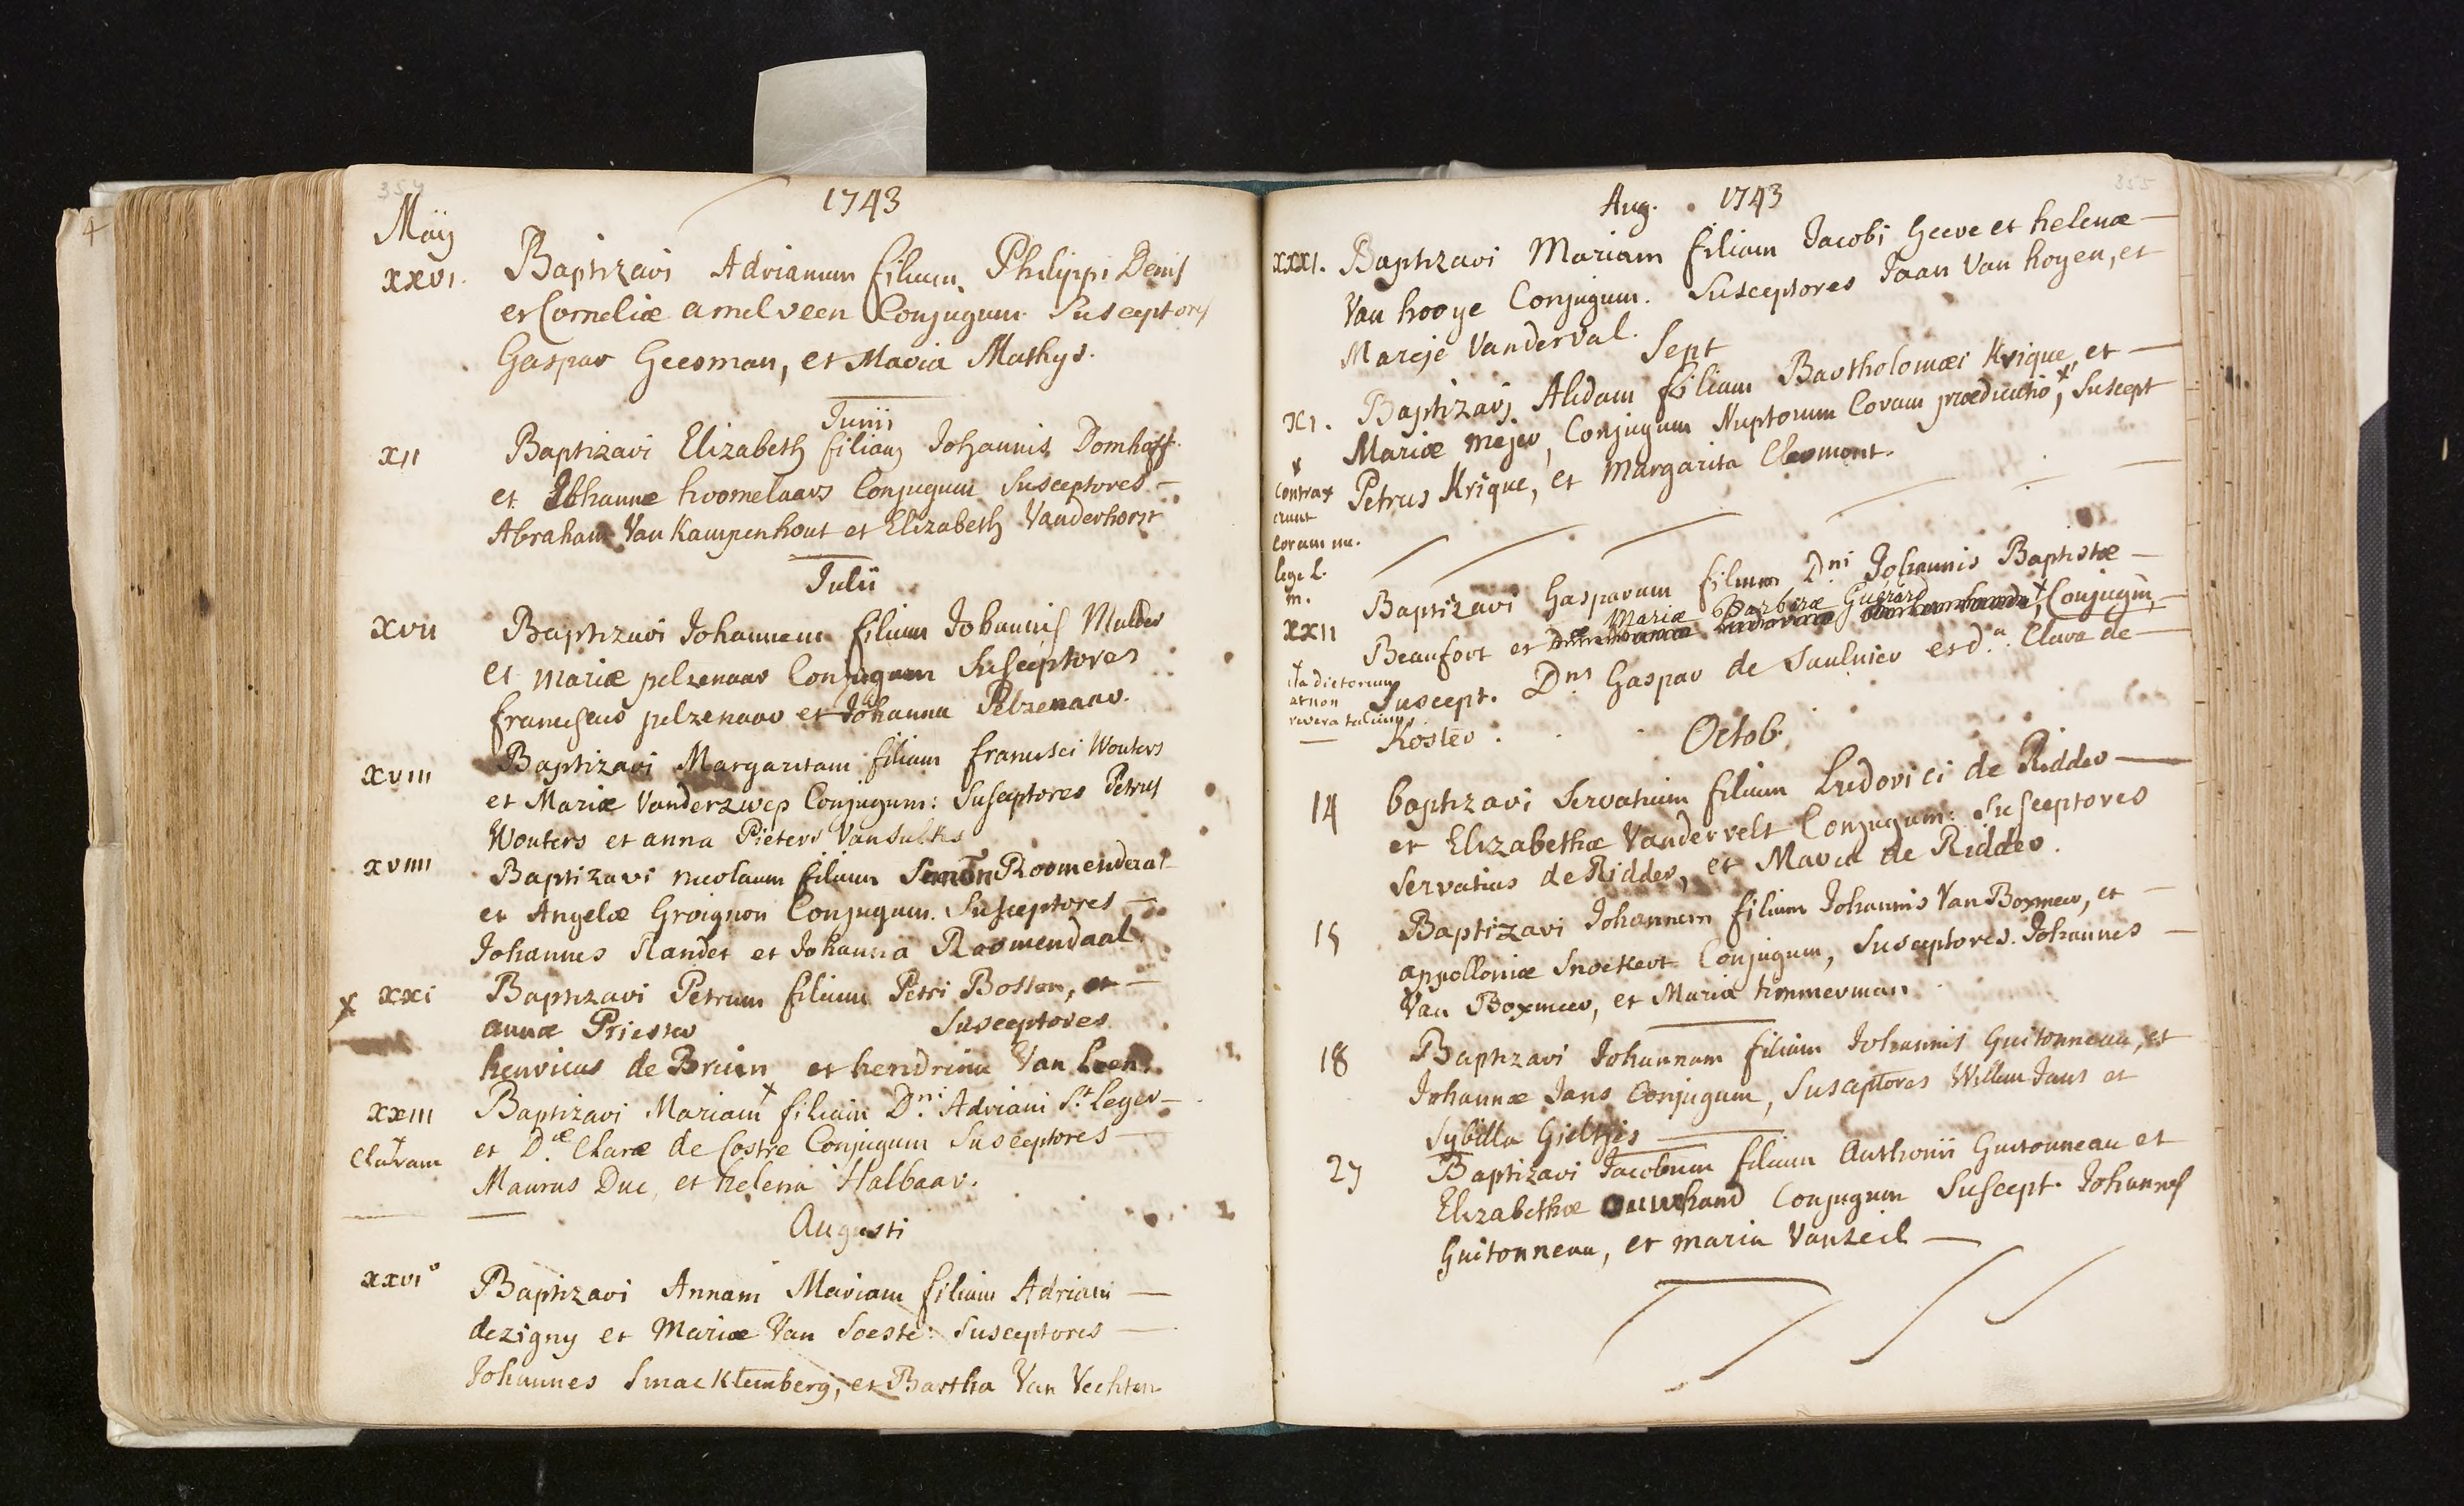 354
1743
Maÿ
xxvi. Baptizavi Adrianum filium Philippi Denis
et Corneliæ amelveen Conjugum Susceptores
Gaspar Geesman, et Maria Mathys.
Junii
xii Baptizavi Elizabeth filiam Johannis Domhoff.
et Johannæ hoomelaars Conjugum Susceptores
Abraham Van Kampenhout et Elizabeth Vanderhorst
Julii
xvii Baptizavi Johannem filium Johannis Mulder
et mariæ pelzenaar Conjugum Susceptores
franciscus pelzenaar et Johanna Pelzenaar.
xviii Baptizavi Margaritam filiam francisci Wouters
et Mariæ Vanderzwep Conjugum: Susceptores Petrus
Wouters et anna Pieters Vansulks
xviiii Baptizavi nicolaum filium Simon Roomendaal
et Angelæ Groignon Conjugum. Susceptores
Johannes Slandet et Johanna Roomendaal.
x xxi Baptizavi Petrum filium Petri Bosten, et
annæ Priester Susceptores
henricus de Bruin et hendrina Van Leen.
xxiii Baptizavi Mariam x filiam Dni Adriani St Leger
x Claram et Dæ Claræ de Costre Conjugum Susceptores
Maurus Duc, et helena Halbaar.
Augusti
xxvi° Baptizavi Annam Mariam filiam Adriani
dezigny et Mariæ Van Soeste: Susceptores
Johannes Smacktemberg, et Bartha Van Vechten
355
Aug. 1743
xxxi. Baptizavi Mariam filiam Jacobi Geeve et helenæ
Van hooye Conjugum. Susceptores Jaan Van hoyen, et
Mareje Vanderval.
Sept
xi. Baptizavi Alidam filiam Bartholomæi Krique, et
Mariæ mejer, Conjugum Nuptorum Coram prædicatio x, Suscept
Petrus Krique, et Margarita Clermont.
x
Contrax
erunt
Coram nu.
lege L.
m.
xxii Baptizavi Gasparum filium Dni Johannis Baptistæ
Mariæ Barbaræ Guérard
Beaufort et x, Conjugum,
Suscept. Dns Gaspar de Saulnier et da. Clara de
Koster.
x
ita dictorum
et non
revera talium
Octob.
14 baptizavi Servatium filium Ludovici de Ridder
et Elizabethæ Vandervelt Conjugum: Susceptores
Servatius de Ridder, et Maria de Ridder.
15 Baptizavi Johannem filium Johannis Van Boxmeer, et
appolloniæ Snoekert Conjugum, Susceptores Johannes
Van Boxmeer, et Maria timmerman
18 Baptizavi Johannam filiam Johannis Guitonneau, et
Johannæ Jans Conjugum, Susceptores Willem Jans et
Sybilla Gieltjis
27 Baptizavi Jacobum filium Anthonii Guitonneau et
Elizabethæ Ouwehand Conjugum Suscept. Johannes
Guitonneau, et maria Vanzeil